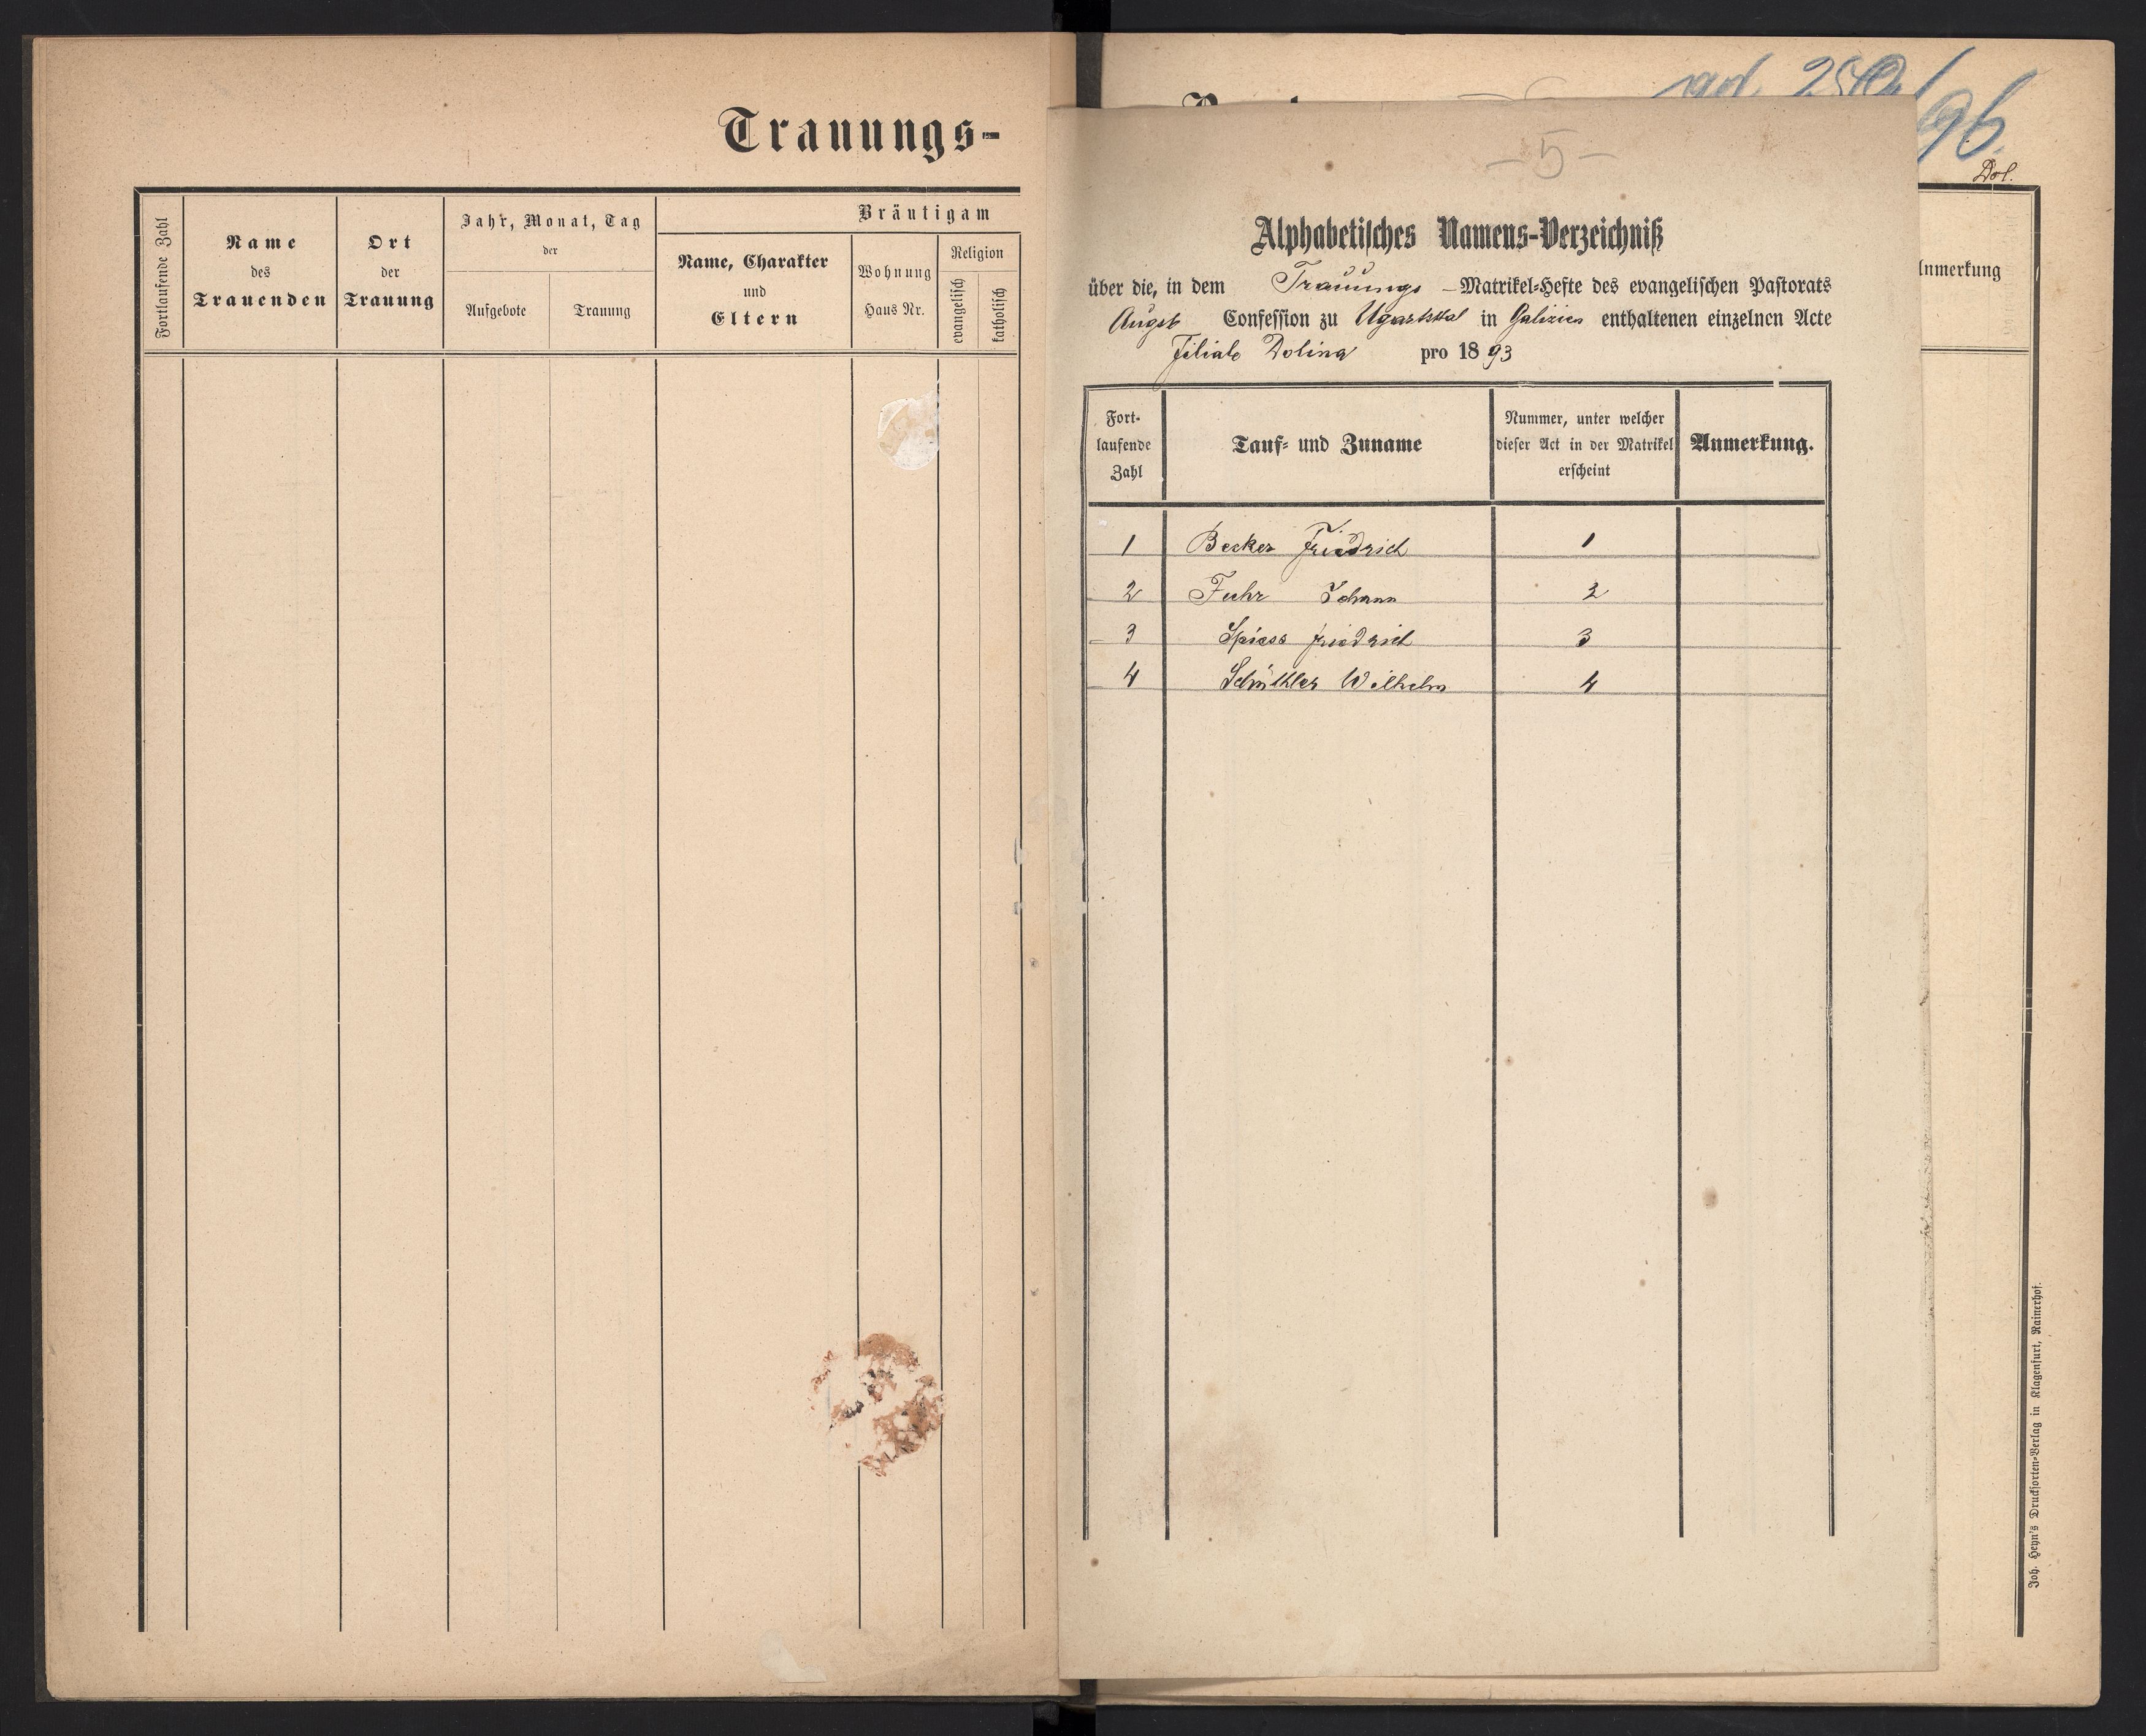 Trauungs-
Fortlaufende Zahl
Name
des
Trauenden
Ort
der
Trauung
Jahr, Monat, Tag
der
Aufgebote
Trauung
Bräutigam
Name, Charakter
und
Eltern
Wohnung
Haus Nr.
Religion
evangelisch
katholisch
96.
Dol.
Anmerkung
- 5 -
Alphabetisches Namens-Verzeichniß
über die, in dem Trauungs -Matrikel-Hefte des evangelischen Pastorats
Augsb Confession zu Ugartsthal in Galizien enthaltenen einzelnen Acte
Filiale Dolina pro 1893
Fort-
laufende
Zahl
Tauf- und Zuname
Nummer, unter welcher
dieser Act in der Matrikel
erscheint
Anmerkung.
1 Becker Friedrich 1
2 Fuhr Johann 2
3 Spiess Friedrich 3
4 Wilhelm 4
Joh. Heyn's Drucksorten-Verlag in Klagenfurt, Rainerhof.